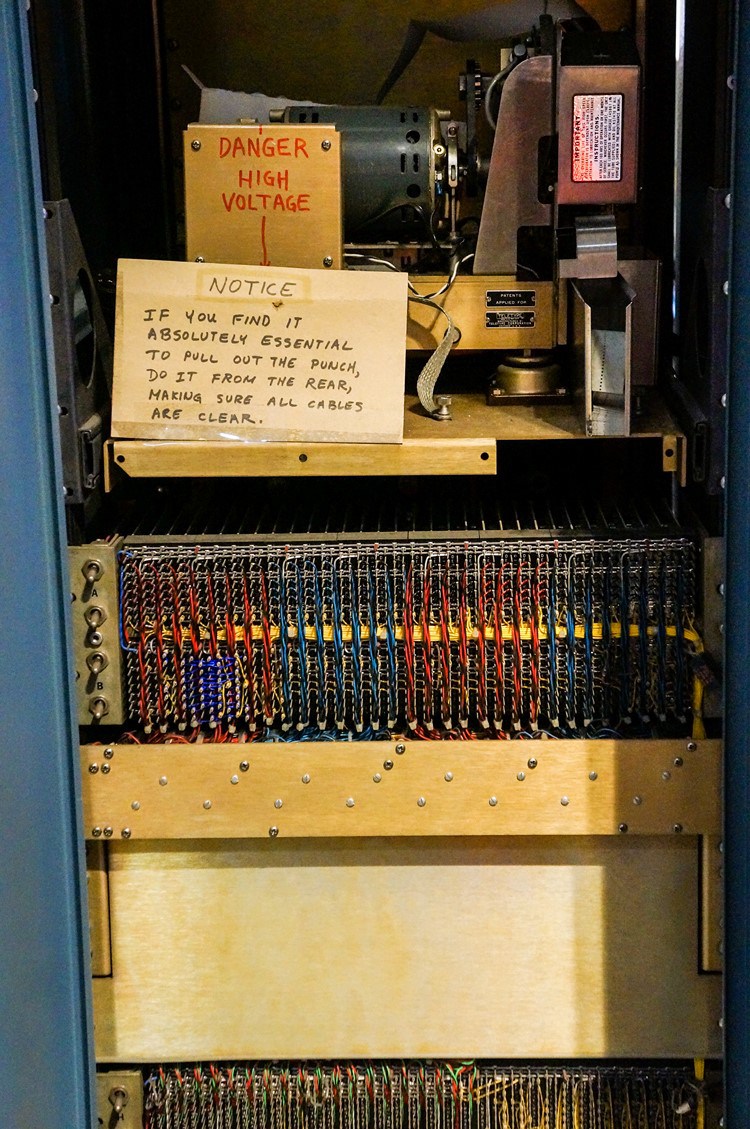 DANGER
HIGH
VOLTAGE
IMPORTANT
INSTRUCTIONS
NOTICE
IF YOU FIND IT
ABSOLUTELY ESSENTIAL
TO PULL OUT THE PUNCH,
DO IT FROM THE REAR,
MAKING SURE ALL CABLES
ARE CLEAR.
PATENTS
APPLIED FOR
TELETYPE
TELETYPE CORPORATION
A
B